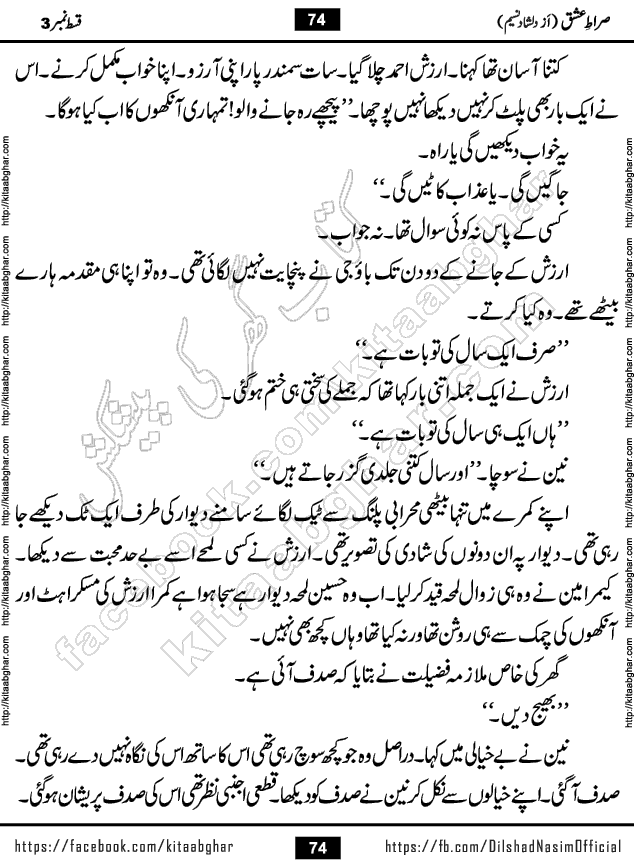 صراطِ عشق (از دلشاد نسیم)
74
قسط نمبر 3
کتنا آسان تھا کہنا۔ ارزش احمد چلا گیا۔ سات سمندر پار اپنی آرزو۔ اپنا خواب مکمل کرنے۔ اس
نے ایک بار بھی پلٹ کر نہیں دیکھا نہیں پوچھا۔ ’’پیچھے رہ جانے والو! تمہاری آنکھوں کا اب کیا ہوگا۔
یہ خواب دیکھیں گی یا راہ۔
جاگیں گی۔ یا عذاب کاٹیں گی۔‘‘
کسی کے پاس نہ کوئی سوال تھا۔ نہ جواب۔
ارزش کے جانے کے دو دن تک باؤ جی نے پنچایت نہیں لگائی تھی۔ وہ تو اپنا ہی مقدمہ ہارے
بیٹھے تھے۔ وہ کیا کرتے۔
’’صرف ایک سال کی تو بات ہے۔‘‘
ارزش نے ایک جملہ اتنی بار کہا تھا کہ جملے کی سختی ہی ختم ہوگئی۔
’’ہاں ایک ہی سال کی تو بات ہے۔‘‘
نین نے سوچا۔ ’’اور سال کتنی جلدی گزر جاتے ہیں۔‘‘
اپنے کمرے میں تنہا بیٹھی محرابی پلنگ سے ٹیک لگائے سامنے دیوار کی طرف ایک ٹک دیکھے جا
رہی تھی۔ دیوار پہ ان دونوں کی شادی کی تصویر تھی۔ ارزش نے کسی لمحے اسے بے حد محبت سے دیکھا۔
کیمرا مین نے وہ ہی زوال لمحہ قید کر لیا۔ اب وہ حسین لمحہ دیوار پے سجا ہوا ہے کمرا ارزش کی مسکراہٹ اور
آنکھوں کی چمک سے ہی روشن تھا ورنہ کیا تھا وہاں کچھ بھی نہیں۔
گھر کی خاص ملازمہ فضیلت نے بتایا کہ صدف آئی ہے۔
’’بھیج دیں۔‘‘
نین نے بے خیالی میں کہا۔ دراصل وہ جو کچھ سوچ رہی تھی اس کا ساتھ اس کی نگاہ نہیں دے رہی تھی۔
صدف آگئی۔ اپنے خیالوں سے نکل کر نین نے صدف کو دیکھا۔ قطعی اجنبی نظر تھی اس کی صدف پریشان ہوگئی۔
کتاب گھر کی پیشکش
kitaabghar.com
facebook.com/kitaabghar
http://kitaabghar.com http://kitaabghar.com http://kitaabghar.com http://kitaabghar.com http://kitaabghar.com http://kitaabghar.com
http://kitaabghar.com http://kitaabghar.com http://kitaabghar.com http://kitaabghar.com http://kitaabghar.com http://kitaabghar.com
https://facebook.com/kitaabghar
74
https://fb.com/DilshadNasimOfficial